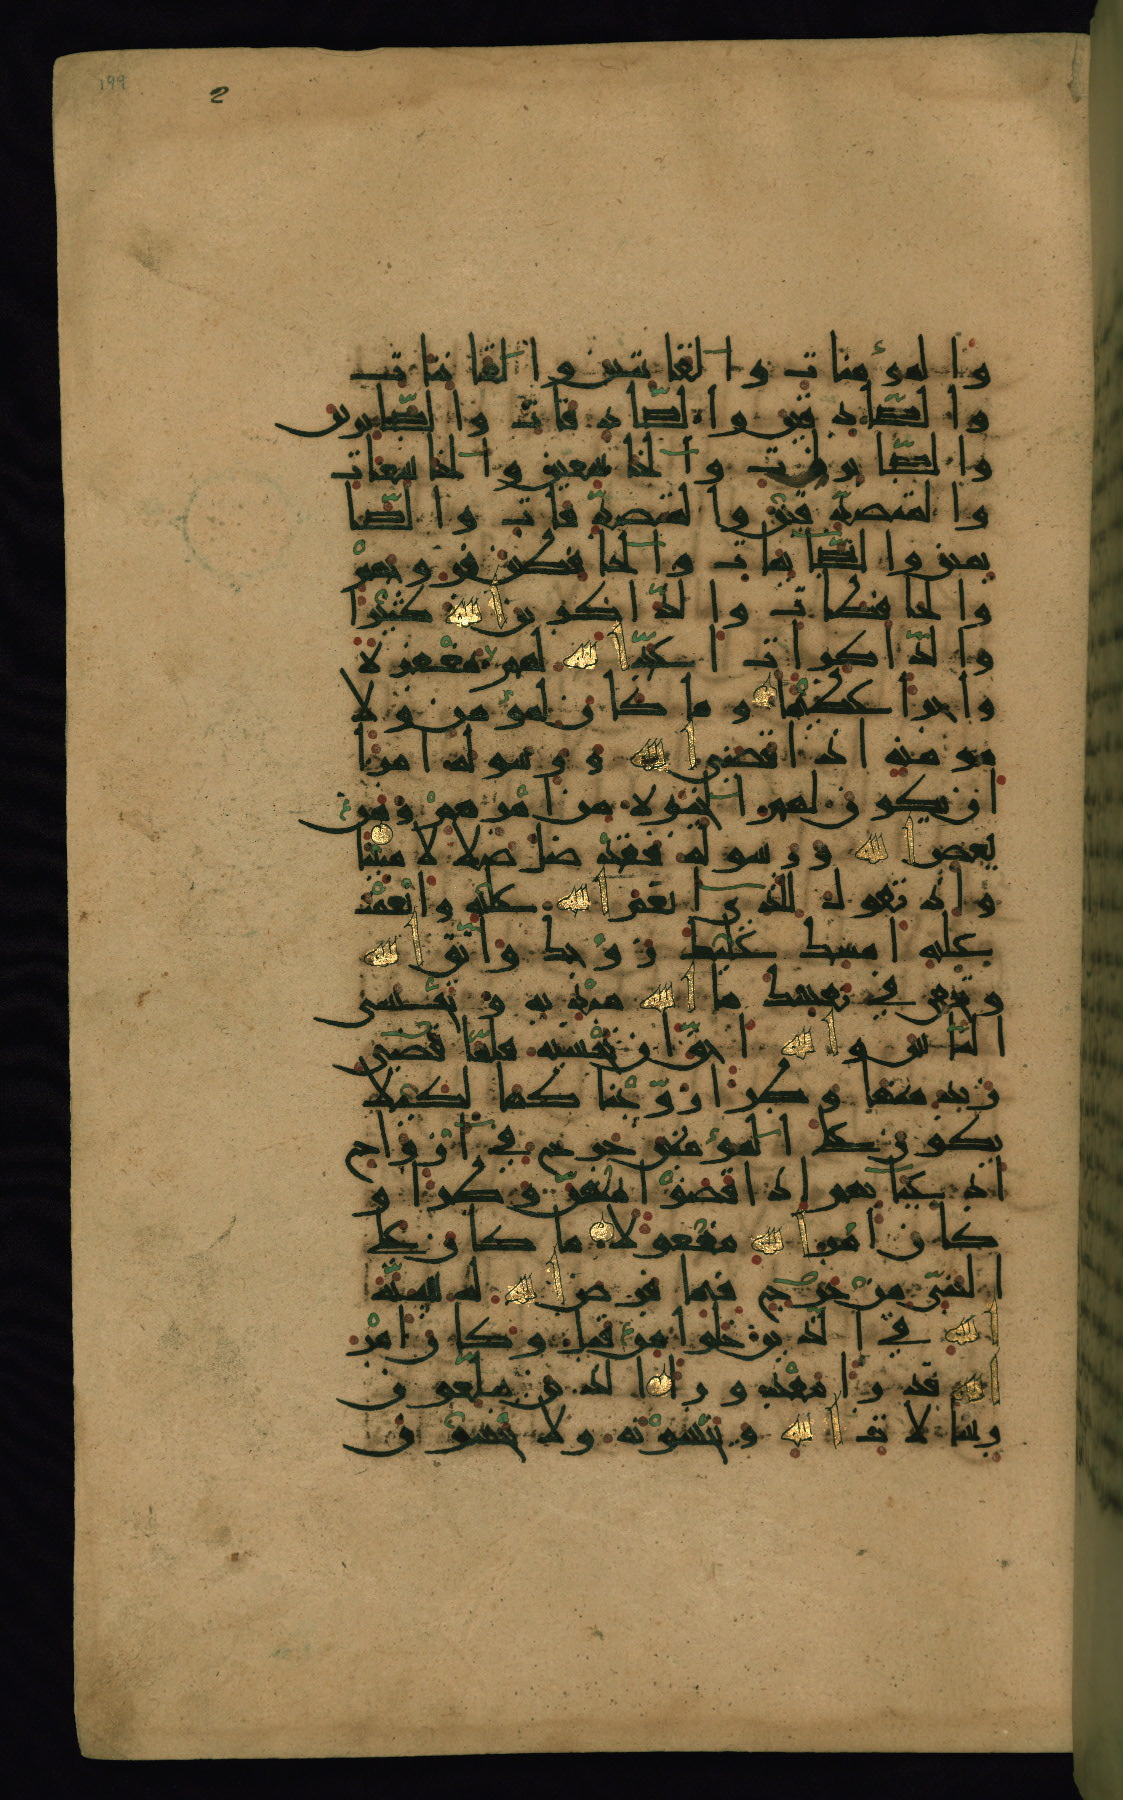 ١٩٩
2
والمؤمنات والقانتين والقانتات
والصّادقين والصّادقات والصّابرين
والصّابرات والخاشعين والخاشعات
والمتصدّقين والمتصدّقات والصّا
ئمين والصّائمات والحافظين فروجهم
والحافظات والذّاكرين الله كثيرا
والذّاكرات اعدّ الله لهم مغفرة
واجرا عظيما وما كان لمؤمن ولا
مؤمنة اذا قضى الله ورسوله امرا
ان يكون لهم الخيرة من امرهم ومن
يعص الله ورسوله فقد ضل ضلالا مبينا
واذ تقول للذى انعم الله عليه وانعمت
عليه امسك عليك زوجك واتّق الله
وتخفي في نفسك ما الله مبديه وتخشى
النّاس والله احقّ ان تخشيه فلمّا قضى
زيد منها وطرا زوّجناكها لكيلا
يكون على المؤمنين حرج في ازواج
ادعيائهم اذا قضوا منهنّ وطرا و
كان امر الله مفعولا ما كان على
النبىّ من حرج فيما فرض الله له سنّة
الله في الذين خلوا من قبل وكان امر
الله قدرا مقدورا الذين يبلّغون
رسالات الله ويخشونه ولا يخشون